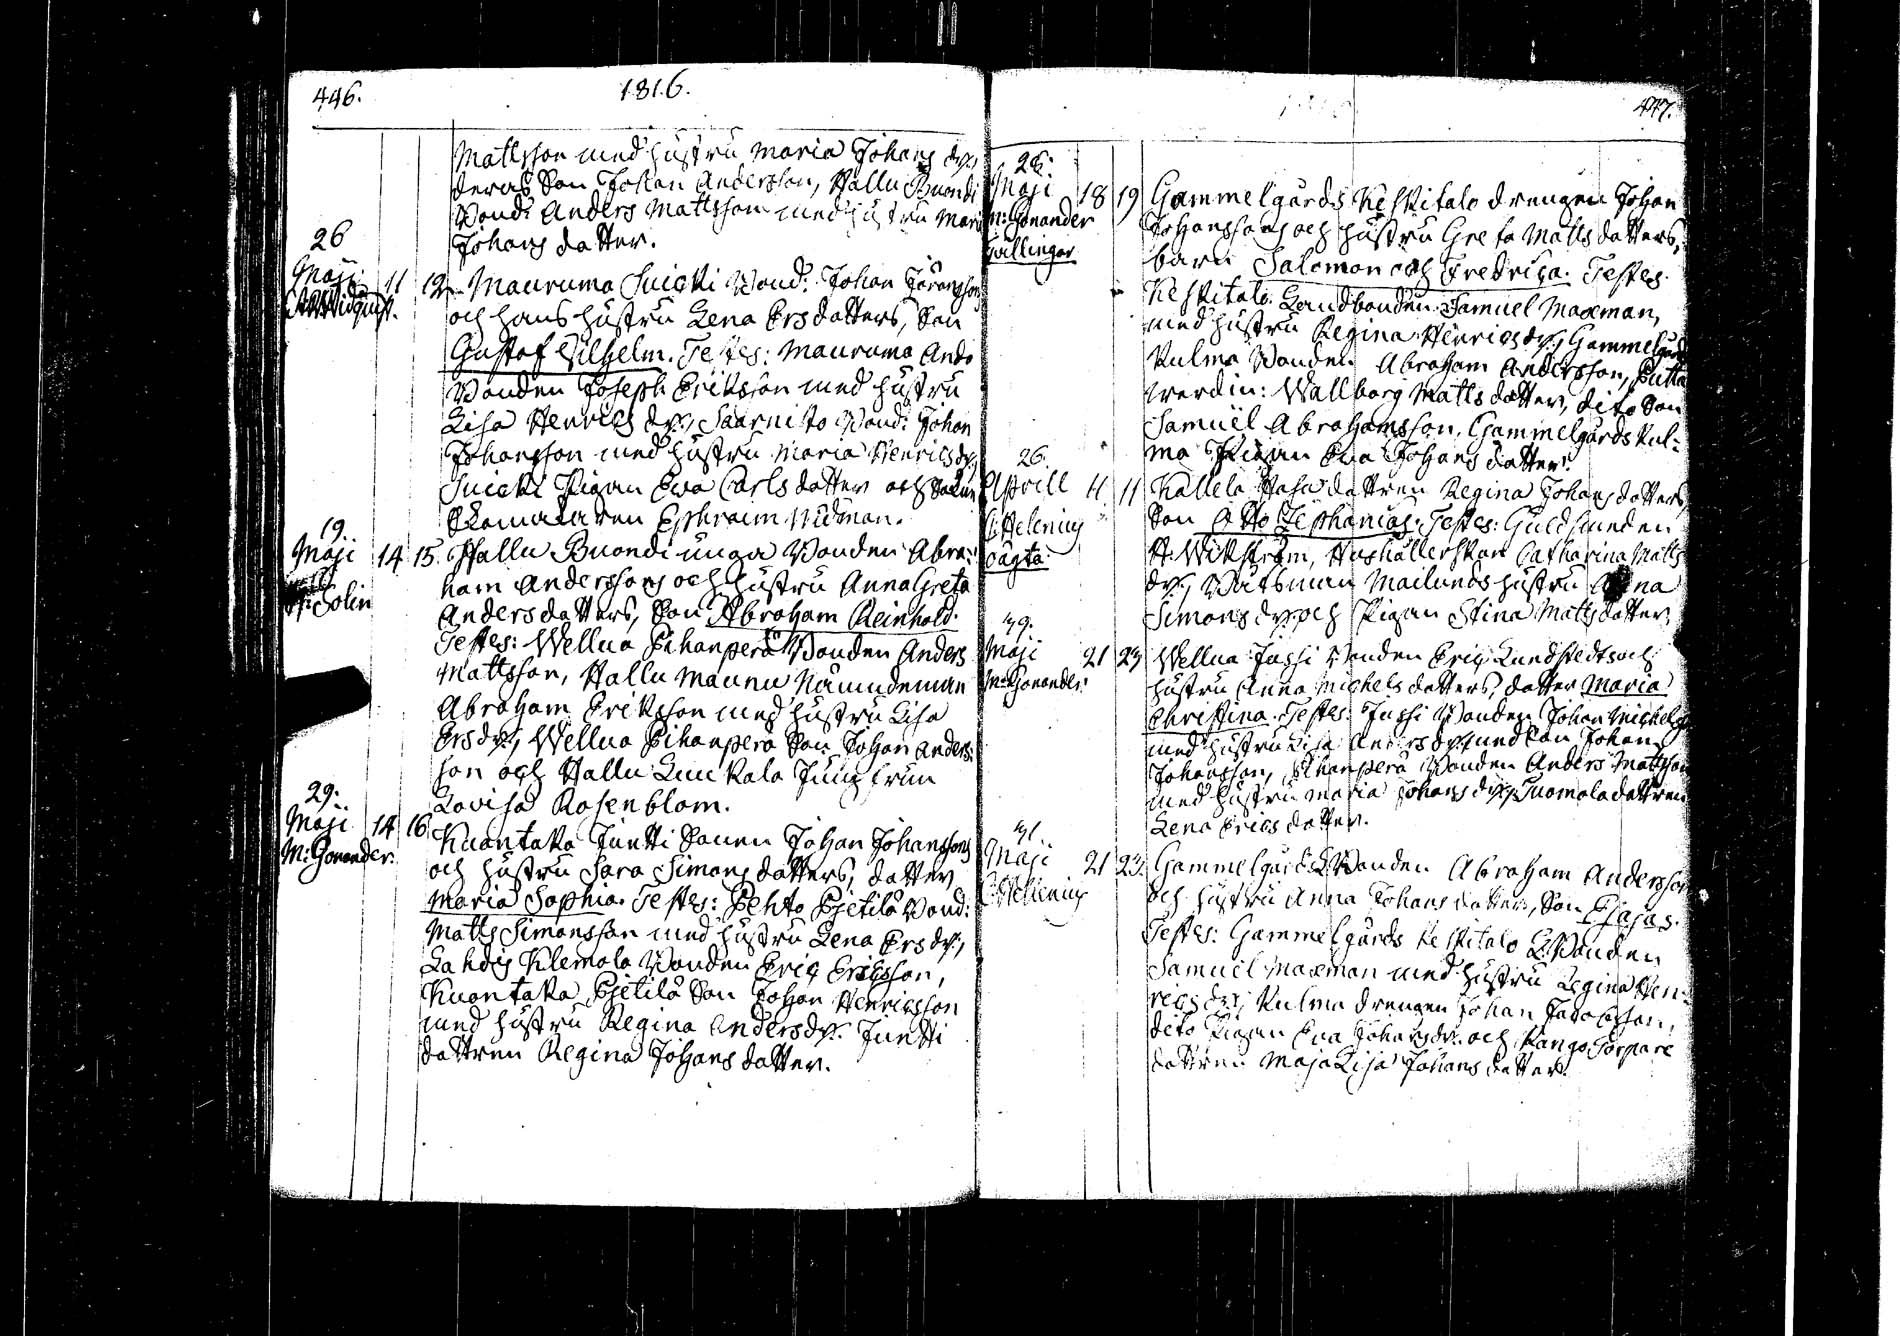 446.
1816.
Mattsson med hustru Maria Johans dr.,
deras Son Johan Andersson, Hallu Buondi
Bond: Anders Mattsson med hustru Maria
Johans datter.
26
Maji 11 12
Mauruma Suicki Bond: Johan Göransson
och hans hustru Lena Ersdatters, Son
Gustaf Wilhelm. Testes: Mauruma Ando
Bonden Joseph Eriksson med hustru
Lisa Henrics dr., Saarnisto Bond: Johan
Johansson med hustru Maria Henrics dr.,
Suicki Pigan Eva Carls datter och
Ephraim Widman.
19.
Maji 14 15.
Solin
Hallu Buondi unga Bonden Abra-
ham Anderssons och hustru Anna Greta
Anders datters, Son Abraham Reinhold.
Testes: Wellua Pihanperä Bonden Anders
Mattsson, Hallu Maunu Nämndeman
Abraham Eriksson med hustru Lisa
Ers dr., Wellua Pihanperä Son Johan Anders-
son och Hallu Luukala Jungfrun
Lovisa Rosenblom.
29.
Maji 14 16
M: Gonander.
Kuontaka Juntti Sonen Johan Johanssons
och hustru Sara Simons datters, datter
Maria Sophia. Testes: Pehto Pjetilä Bond:
Matts Simonsson med hustru Lena Ers dr.,
Lahdis Klemola Bonden Eric Ericsson,
Kuontaka Pjetilä Son Johan Henricsson
med hustru Regina Anders dr. Juntti
dattren Regina Johans datter.
447.
28.
Maji 18 19
M: Gonander
Tvillingar
Gammelgårds Keskitalo drengen Johan
Johanssons och hustru Greta Matts datters,
barn Salomon och Fredrica. Testes.
Keskitalo Landbonden Samuel Maxman,
med hustru Regina Henrics dr., Gammelgårds
Kulma Bonden Abraham Andersson,
werdin: Wallborg Matts datter, dito Son
Samuel Abrahamsson, Gammelgårds Kul-
ma Pigan Eva Johans datter.
26.
Aprill 11 11
C: Helenius
oägta
Kallela dattren Regina Johans datters,
Son Otto Zephanias. Testes: Guldsmeden
H: Wikström, Hushållerskan Catharina Matts
dr., Båtsman Mailunds hustru
Simons dr. och Pigan Stina Matts datter.
29.
Maji 21 23
M: Gonander.
Wellua Jussi Bonden Eric Lundstedts och
hustru Anna Michels datters, datter Maria
Christina. Testes: Jussi Bonden Johan Michelss
med hustru Lisa Anders dr. med Son Johan
Johansson, Pihanperä Bonden Anders Mattsson
med hustru Maria Johans dr., Tuomola dattren
Lena Erics datter.
31.
Maji 21 23.
C: Hellenius
Gammelgårds Bonden Abraham Andersson
och hustru Anna Johans datters, Son Esajas.
Testes: Gammelgårds Keskitalo L:Bonden
Samuel Maxman med hustru Regina Hen-
rics dr., Kulma drengen Johan Jacobsson,
dito Pigan Eva Johans dr. och Kango Torpare
dattren Maja Lisa Johans datter.